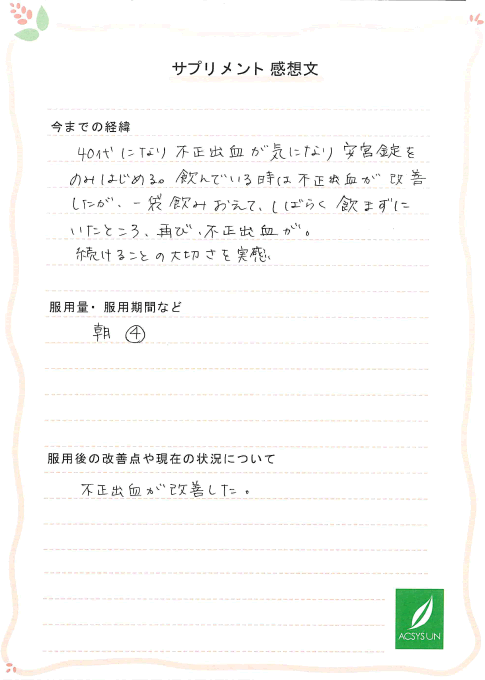 サプリメント 感想文
今までの経緯
40代になり 不正出血が気になり 安宮錠を
のみはじめる。飲んでいる時は不正出血が 改善
したが、一袋飲みおえて、しばらく 飲まずに
いたところ、再び、不正出血が。
続けることの大切さを実感、
服用量・服用期間など
朝 ④
服用後の改善点や現在の状況について
不正出血が改善した。
ACSYSUN